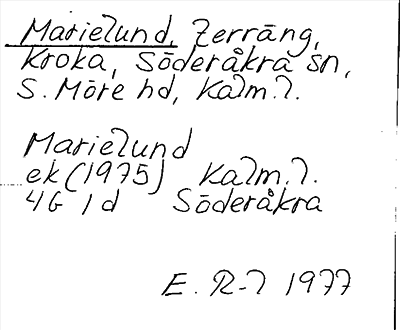 Marielund, Terräng,
Kroka, Söderåkra sn,
S. Möre hd, Kalm. l.
Marielund
ek (1975) Kalm. l.
4G 1d Söderåkra
E. R-l 1977